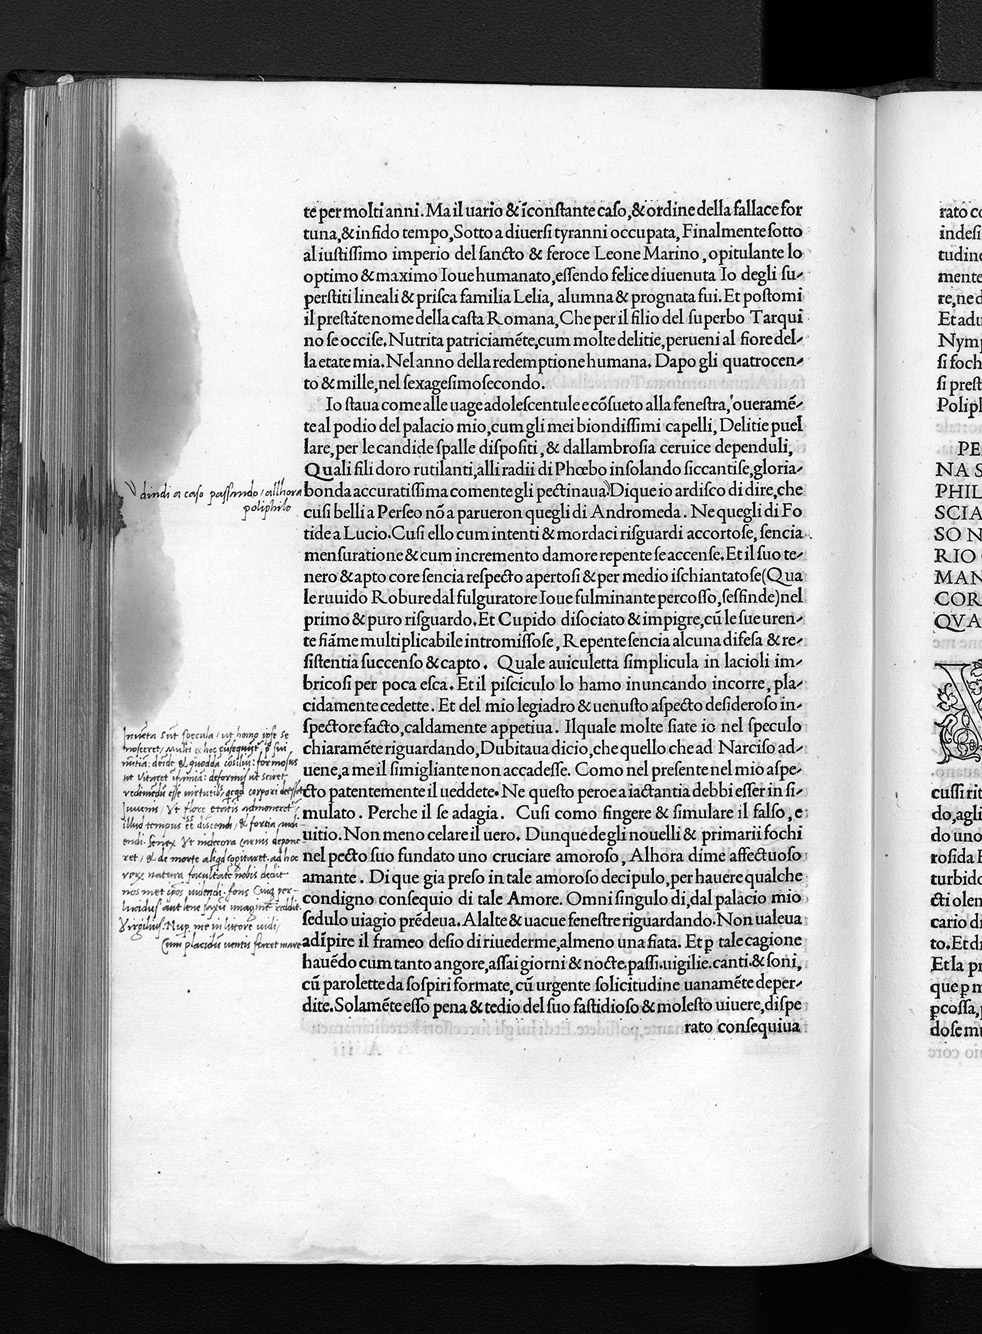 te per molti anni. Ma il uario & īconſtante caſo, & ordine della fallace for
tuna, & infido tempo, Sotto a diuerſi tyranni occupata, Finalmente ſotto
al iuſtiſſimo imperio del ſancto & feroce Leone Marino, opitulante lo
optimo & maximo Ioue humanato, eſſendo felice diuenuta Io degli ſu-
perſtiti lineali & priſca familia Lelia, alumna & prognata fui. Et poſtomi
il preſtāte nome della caſta Romana, Che per il filio del ſuperbo Tarqui
no ſe occiſe. Nutrita patriciamēte, cum molte delitie, perueni al fiore del-
la etate mia. Nel anno della redemptione humana. Dapo gli quatrocen-
to & mille, nel ſexageſimo ſecondo.
Io ſtaua come alle uage adoleſcentule e cōſueto alla feneſtra, oueramē-
te al podio del palacio mio, cum gli mei biondiſſimi capelli, Delitie puel
lare, per le candide ſpalle diſpoſiti, & dallambroſia ceruice dependuli,
Quali fili doro rutilanti, alli radii di Phœbo inſolando ſiccantiſe, gloria-
dindi a caso passando / allhora
poliphilo
bonda accuratiſſima comente gli pectinaua. Dique io ardiſco di dire, che
cuſi belli a Perſeo nō a parueron quegli di Andromeda. Ne quegli di Fo
tide a Lucio. Cuſi ello cum intenti & mordaci riſguardi accortoſe, ſencia
menſuratione & cum incremento damore repente ſe accenſe. Et il ſuo te-
nero & apto core ſencia reſpecto apertoſi & per medio iſchiantatoſe (Qua
le ruuido Robure dal fulguratore Ioue fulminante percoſſo, ſeſſinde) nel
primo & puro riſguardo. Et Cupido diſociato & impigre, cū le ſue uren-
te fiāme multiplicabile intromiſſoſe, Repente ſencia alcuna difeſa & re-
ſiſtentia ſuccenſo & capto. Quale auiculetta ſimplicula in lacioli im-
bricoſi per poca eſca. Et il piſciculo lo hamo inuncando incorre, pla-
cidamente cedette. Et del mio legiadro & uenuſto aſpecto deſideroſo in-
ſpectore facto, caldamente appetiua. Ilquale molte fiate io nel ſpeculo
chiaramēte riguardando, Dubitaua dicio, che quello che ad Narciſo ad-
uene, a me il ſimigliante non accadeſſe. Como nel preſente nel mio aſpe-
cto patentemente il ueddete. Ne queſto pero e a iactantia debbi eſſer in ſi-
mulato. Perche il ſe adagia. Cuſi como fingere & ſimulare il falſo, e
uitio. Non meno celare il uero. Dunque degli nouelli & primarii fochi
nel pecto ſuo fundato uno cruciare amoroſo, Alhora dime affectuoſo
amante. Di que gia preſo in tale amoroſo decipulo, per hauere qualche
condigno conſequio di tale Amore. Omni ſingulo di, dal palacio mio
ſedulo uiagio prēdeua. Alalte & uacue feneſtre riguardando. Non ualeua
adīpire il frameo deſio di riuederme, almeno una fiata. Et ꝑ tale cagione
hauēdo cum tanto angore, aſſai giorni & nocte. paſſi. uigilie. canti. & ſoni,
cū parolette da ſoſpiri formate, cū urgente ſolicitudine uanamēte deper-
dite. Solamēte eſſo pena & tedio del ſuo faſtidioſo & moleſto uiuere, diſpe
rato conſequiua
Inventa sūt specula / ut homo ipse se
nosceret,
Iuvenis, ut flore etatis admoneret
illud tempus eē discendi, & fortia audi-
endi.
ret, & de morte aliqd cogitaret. ad hoc
natura facultatē nobis dedit
nosmet ipsos uidendi. fons
Virgilius. Nup me in littore uidi,
Cum placidū uentis staret mare